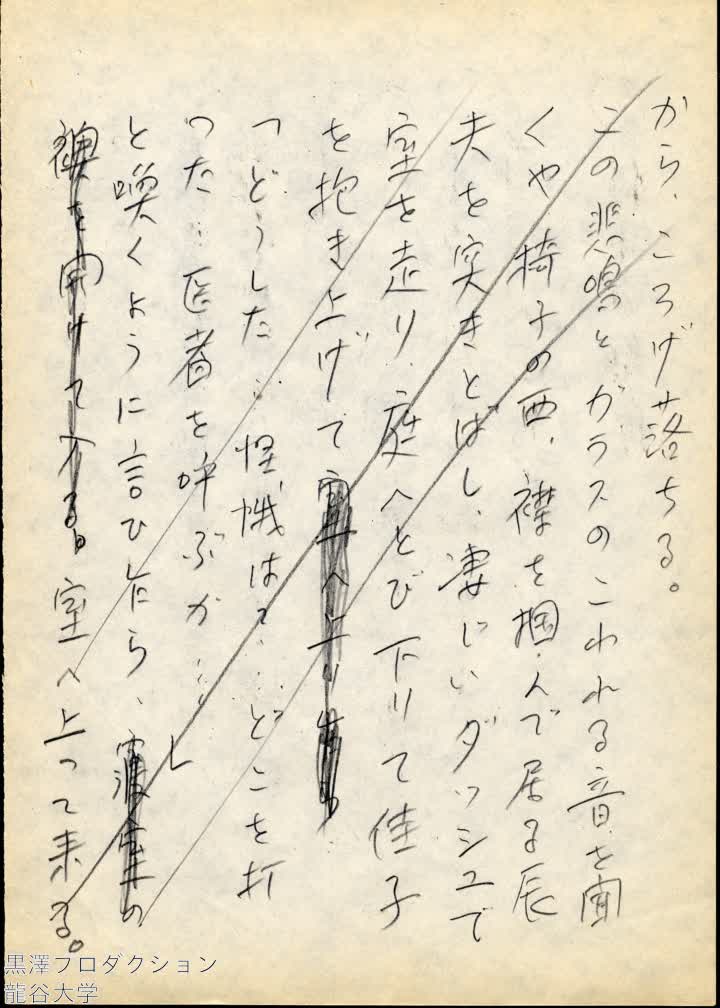 から、ころげ落ちる。
この悲鳴とガラスのこわれる音を聞
くや椅子の西、襟を掴んで居る辰
夫を突きとばし、凄じいダッシュで
室を走り、庭へとび下りて佳子
を抱き上げて室へ上り乍ら
「どうした…怪我は?…どこを打
つた…医者を呼ぶか…」
と喚くように言ひ乍ら、寝室の
襖を開けて入る。室へ上つて来る。
黒澤プロダクション
龍谷大学